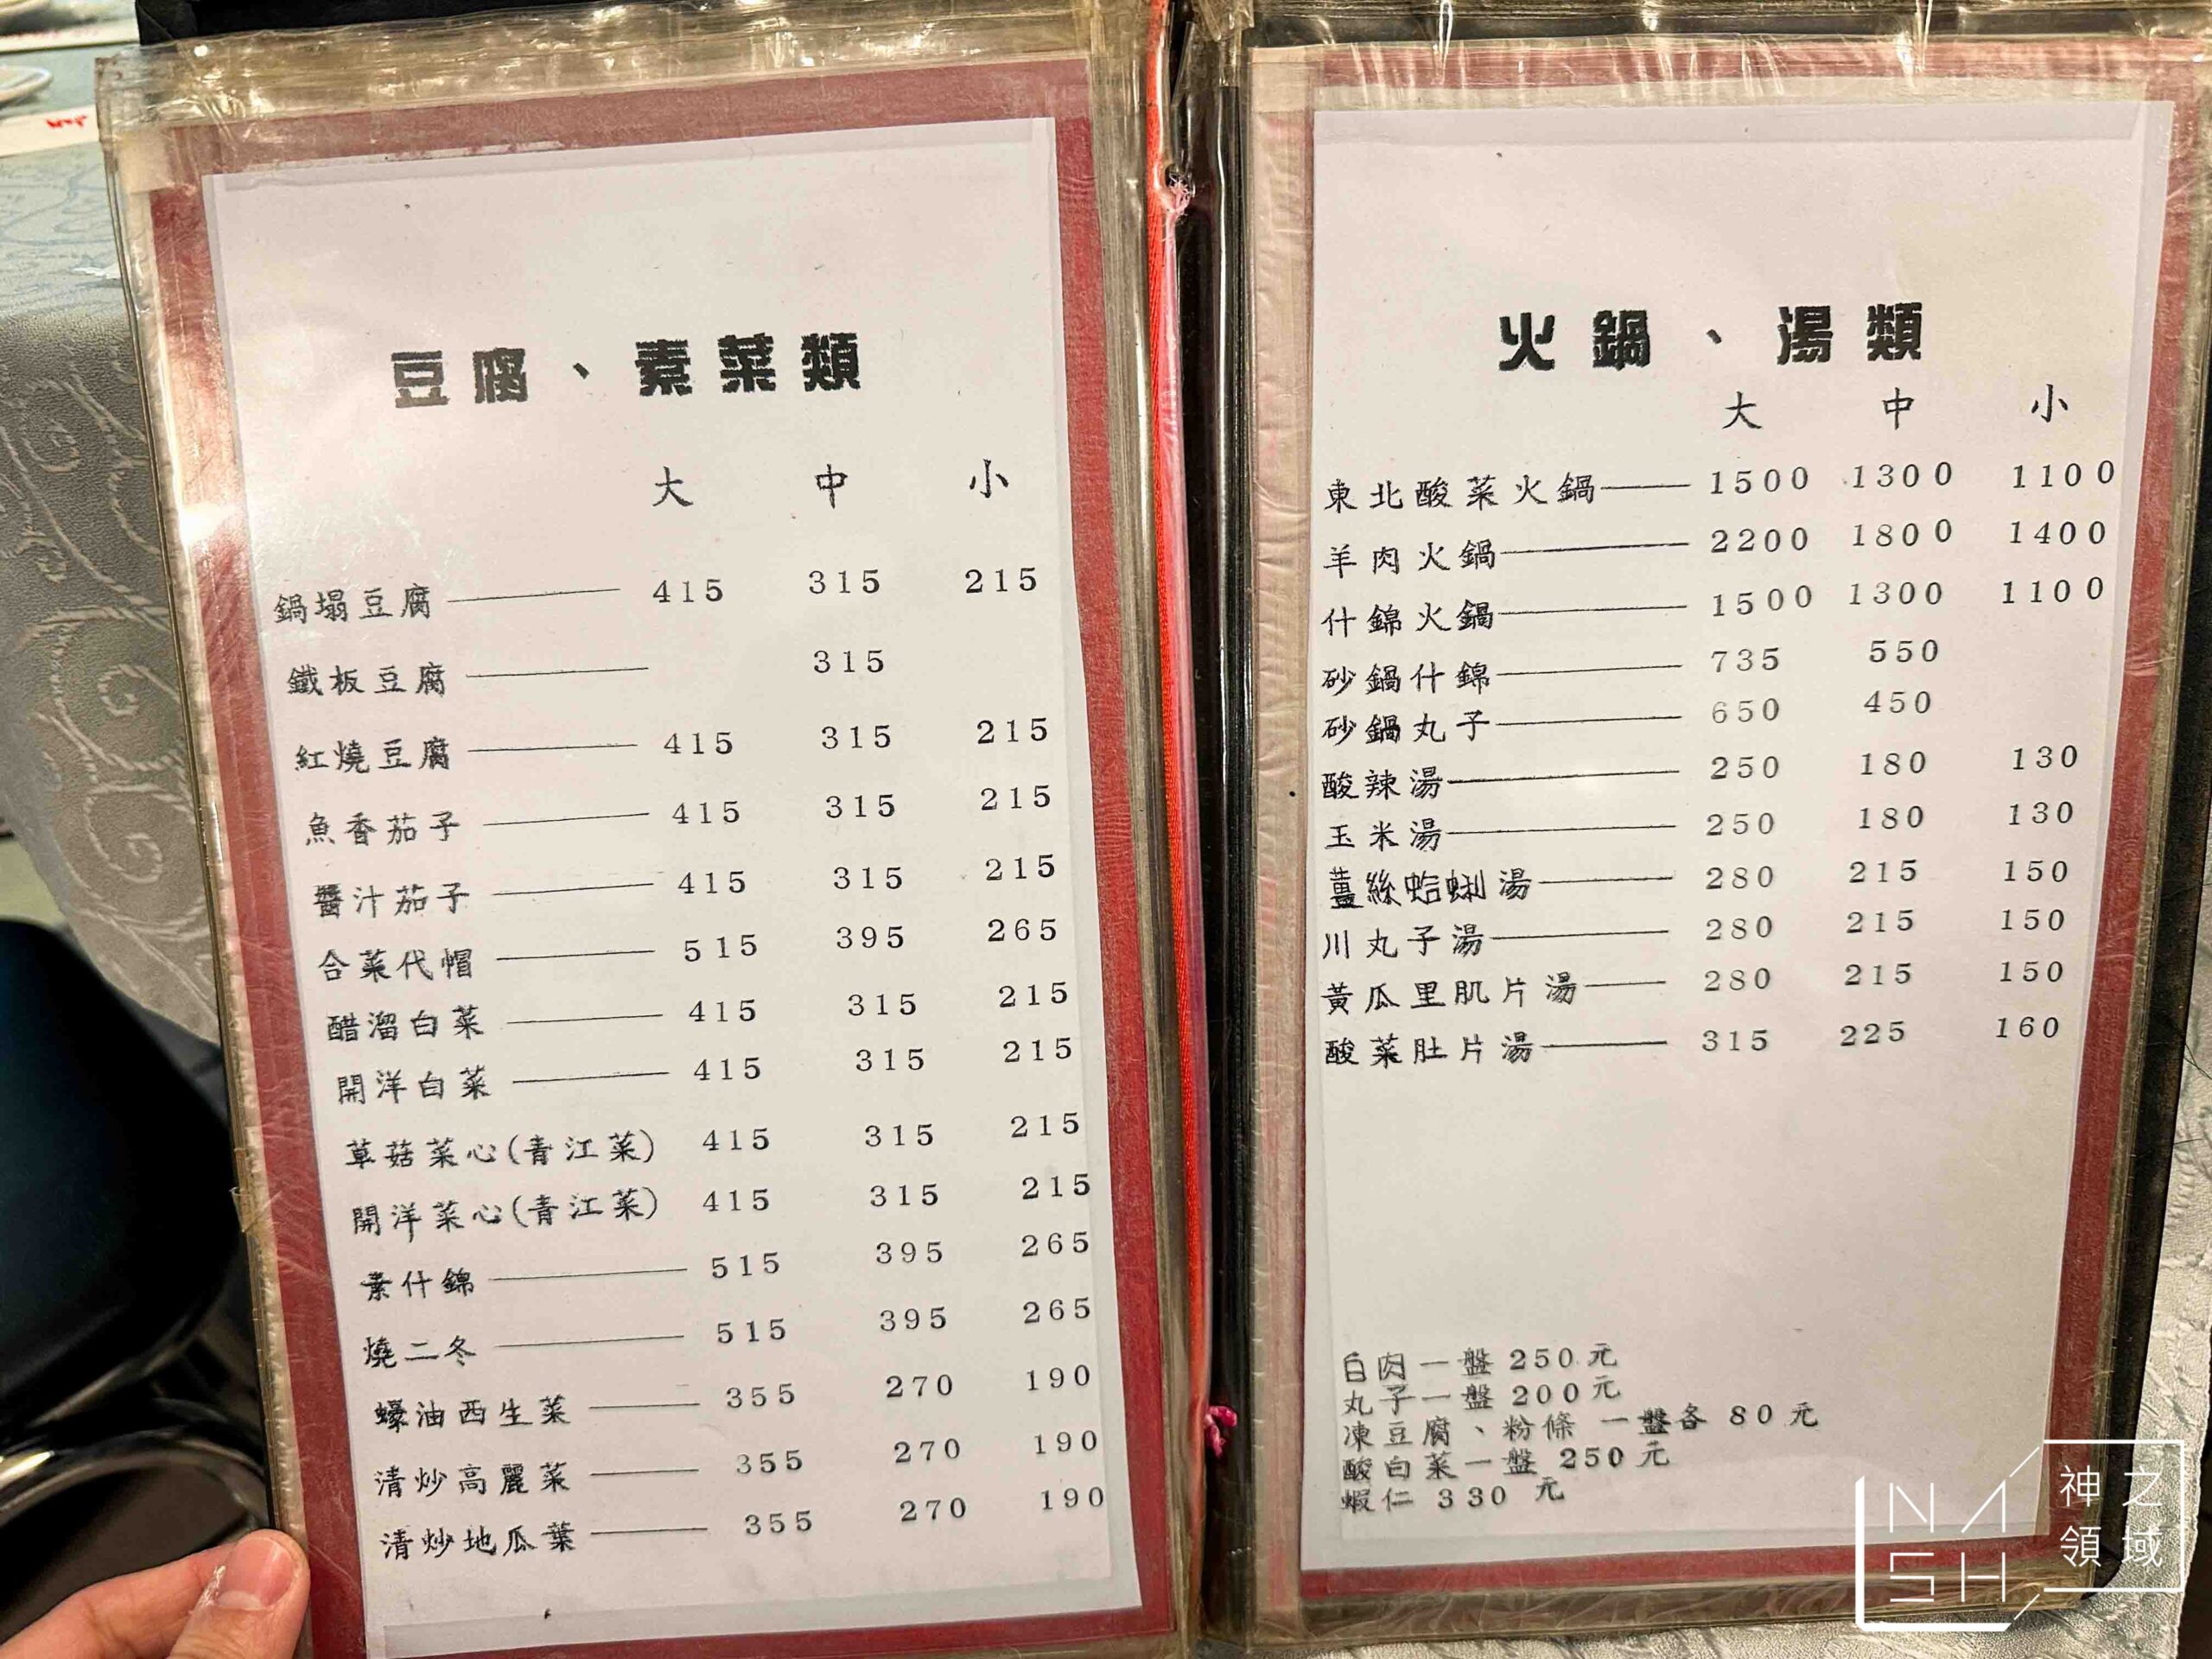 豆腐、素菜類
大 中 小
鍋塌豆腐 415 315 215
鐵板豆腐 315
紅燒豆腐 415 315 215
魚香茄子 415 315 215
醬汁茄子 415 315 215
合菜代帽 515 395 265
醋溜白菜 415 315 215
開洋白菜 415 315 215
草菇菜心(青江菜) 415 315 215
開洋菜心(青江菜) 415 315 215
素什錦 515 395 265
燒二冬 515 395 265
蠔油西生菜 355 270 190
清炒高麗菜 355 270 190
清炒地瓜葉 355 270 190
火鍋、湯類
大 中 小
東北酸菜火鍋 1500 1300 1100
羊肉火鍋 2200 1800 1400
什錦火鍋 1500 1300 1100
砂鍋什錦 735 550
砂鍋丸子 650 450
酸辣湯 250 180 130
玉米湯 250 180 130
薑絲蛤蜊湯 280 215 150
川丸子湯 280 215 150
黃瓜里肌片湯 280 215 150
酸菜肚片湯 315 225 160
白肉一盤 250元
丸子一盤 200元
凍豆腐、粉條 一盤各 80元
酸白菜一盤 250元
蝦仁 330 元
NASH
神之
領域